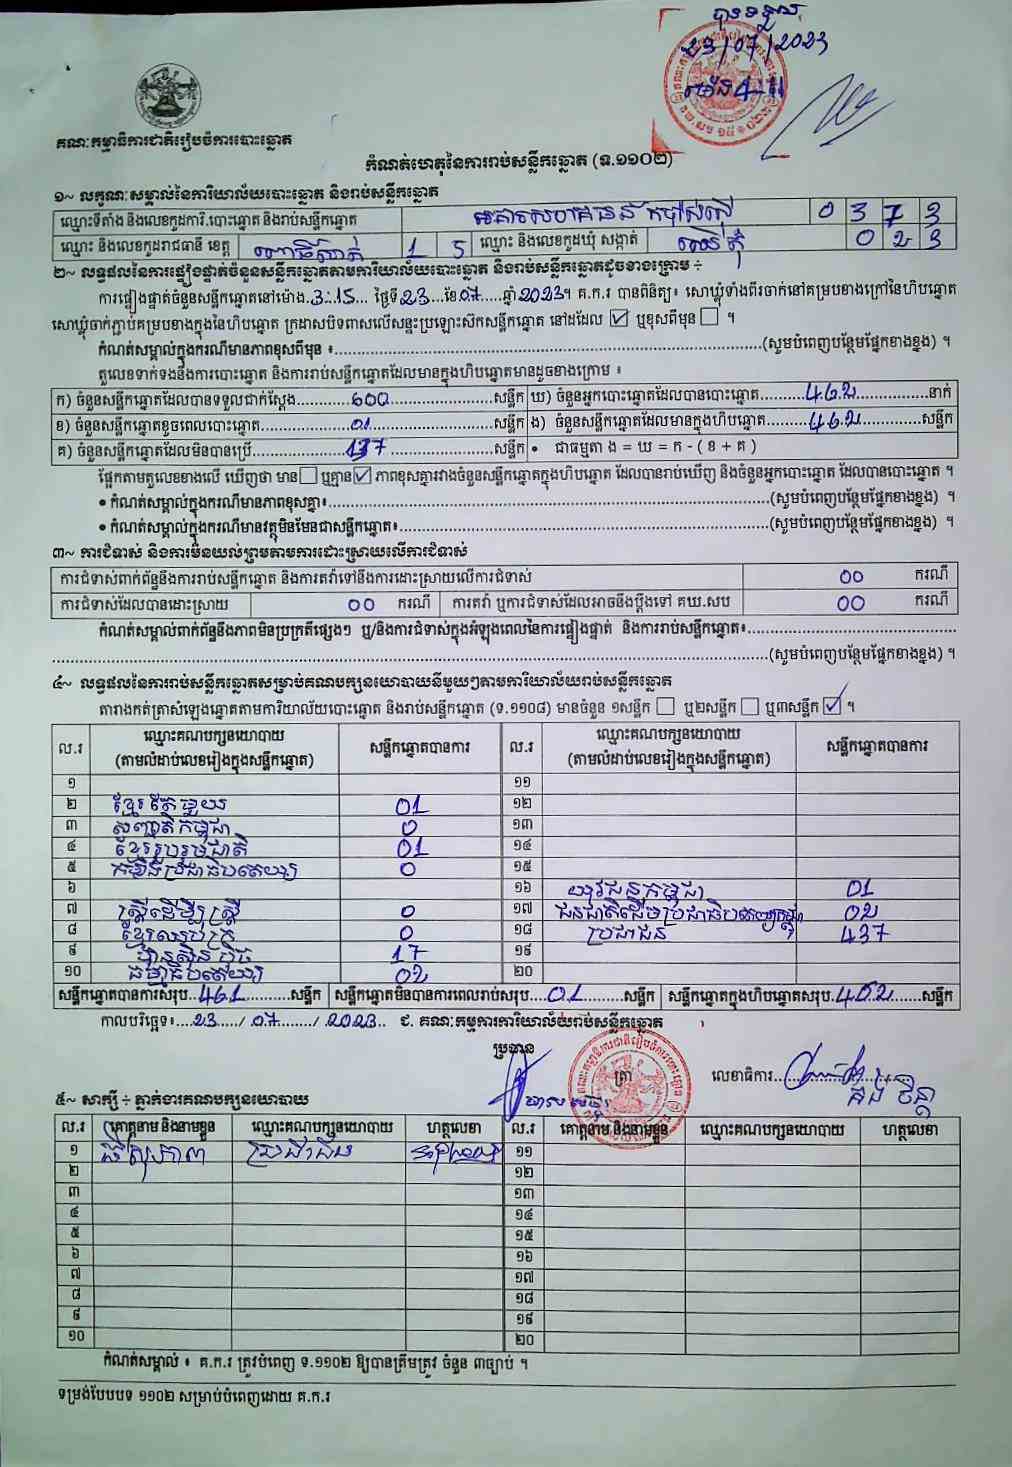 បានទទួល
23/07/2023
គណៈកម្មាធិការជាតិរៀបចំការបោះឆ្នោត
កំណត់ហេតុនៃការរាប់សន្លឹកឆ្នោត (ទ.១១០២)
១~ លក្ខណៈសម្គាល់នៃការិយាល័យបោះឆ្នោត និងរាប់សន្លឹកឆ្នោត
ឈ្មោះទីតាំង និងលេខកូដការិ.បោះឆ្នោត និងរាប់សន្លឹកឆ្នោត 0 3 7 3
ឈ្មោះ និងលេខកូដរាជធានី ខេត្ត ពោធិ៍សាត់ 1 5 ឈ្មោះ និងលេខកូដឃុំ សង្កាត់ 0 2 3
២~ លទ្ធផលនៃការផ្ទៀងផ្ទាត់ចំនួនសន្លឹកឆ្នោតតាមការិយាល័យបោះឆ្នោត និងរាប់សន្លឹកឆ្នោតដូចខាងក្រោម ÷
ការផ្ទៀងផ្ទាត់ចំនួនសន្លឹកឆ្នោតនៅម៉ោង.3:15... ថ្ងៃទី23...ខែ07......ឆ្នាំ2023។ គ.ក.រ បានពិនិត្យ៖ សោឃ្លុំទាំងពីរចាក់នៅគម្របខាងក្រៅនៃហិបឆ្នោត
សោឃ្លុំចាក់ភ្ជាប់គម្របខាងក្នុងនៃហិបឆ្នោត ក្រដាសបិទពាសលើសន្ទះប្រឡោះស៊កសន្លឹកឆ្នោត នៅដដែល ☑ ឬខុសពីមុន ☐ ។
កំណត់សម្គាល់ក្នុងករណីមានភាពខុសពីមុន ៖..........(សូមបំពេញបន្ថែមផ្នែកខាងខ្នង) ។
តួលេខទាក់ទងនឹងការបោះឆ្នោត និងការរាប់សន្លឹកឆ្នោតដែលមានក្នុងហិបឆ្នោតមានដូចខាងក្រោម ៖
ក) ចំនួនសន្លឹកឆ្នោតដែលបានទទួលជាក់ស្ដែង..........600..........សន្លឹក ឃ) ចំនួនអ្នកបោះឆ្នោតដែលបានបោះឆ្នោត..........462..........នាក់
ខ) ចំនួនសន្លឹកឆ្នោតខូចពេលបោះឆ្នោត..........01..........សន្លឹក ង) ចំនួនសន្លឹកឆ្នោតដែលមានក្នុងហិបឆ្នោត..........462..........សន្លឹក
គ) ចំនួនសន្លឹកឆ្នោតដែលមិនបានប្រើ..........137..........សន្លឹក • ជាធម្មតា ង = ឃ = ក - ( ខ + គ )
ផ្អែកតាមតួលេខខាងលើ ឃើញថា មាន☐ ឬគ្មាន☑ ភាពខុសគ្នារវាងចំនួនសន្លឹកឆ្នោតក្នុងហិបឆ្នោត ដែលបានរាប់ឃើញ និងចំនួនអ្នកបោះឆ្នោត ដែលបានបោះឆ្នោត ។
• កំណត់សម្គាល់ក្នុងករណីមានភាពខុសគ្នា៖..........(សូមបំពេញបន្ថែមផ្នែកខាងខ្នង) ។
• កំណត់សម្គាល់ក្នុងករណីមានវត្ថុមិនមែនជាសន្លឹកឆ្នោត៖..........(សូមបំពេញបន្ថែមផ្នែកខាងខ្នង) ។
៣~ ការជំទាស់ និងការមិនយល់ព្រមតាមការដោះស្រាយលើការជំទាស់
ការជំទាស់ពាក់ព័ន្ធនឹងការរាប់សន្លឹកឆ្នោត និងការតវ៉ាទៅនឹងការដោះស្រាយលើការជំទាស់ 00 ករណី
ការជំទាស់ដែលបានដោះស្រាយ 00 ករណី ការតវ៉ា ឬការជំទាស់ដែលអាចនឹងប្ដឹងទៅ គឃ.សប 00 ករណី
កំណត់សម្គាល់ពាក់ព័ន្ធនឹងភាពមិនប្រក្រតីផ្សេងៗ ឬ/និងការជំទាស់ក្នុងអំឡុងពេលនៃការផ្ទៀងផ្ទាត់ និងការរាប់សន្លឹកឆ្នោត៖..........
..........(សូមបំពេញបន្ថែមផ្នែកខាងខ្នង) ។
៤~ លទ្ធផលនៃការរាប់សន្លឹកឆ្នោតសម្រាប់គណបក្សនយោបាយនីមួយៗតាមការិយាល័យរាប់សន្លឹកឆ្នោត
តារាងកត់ត្រាសំឡេងឆ្នោតតាមការិយាល័យបោះឆ្នោត និងរាប់សន្លឹកឆ្នោត (ទ.១១០៨) មានចំនួន ១សន្លឹក ☐ ឬ២សន្លឹក ☐ ឬ៣សន្លឹក ☑ ។
ល.រ ឈ្មោះគណបក្សនយោបាយ (តាមលំដាប់លេខរៀងក្នុងសន្លឹកឆ្នោត) សន្លឹកឆ្នោតបានការ ល.រ ឈ្មោះគណបក្សនយោបាយ (តាមលំដាប់លេខរៀងក្នុងសន្លឹកឆ្នោត) សន្លឹកឆ្នោតបានការ
១ ១១
២ ខ្មែរតែមួយ 01 ១២
៣ សញ្ជាតិកម្ពុជា 0 ១៣
៤ ខ្មែររួបរួមជាតិ 01 ១៤
៥ កម្លាំងប្រជាធិបតេយ្យ 0 ១៥
៦ ១៦ យុវជនកម្ពុជា 01
៧ ស្ត្រីដើម្បីស្ត្រី 0 ១៧ ជនជាតិដើមប្រជាធិបតេយ្យកម្ពុជា 02
៨ ខ្មែរឈប់ក្រ 0 ១៨ ប្រជាជន 437
៩ ហ៊្វុនស៊ិនប៉ិច 17 ១៩
១០ ធម្មាធិបតេយ្យ 02 ២០
សន្លឹកឆ្នោតបានការសរុប..461..........សន្លឹក សន្លឹកឆ្នោតមិនបានការពេលរាប់សរុប....01..........សន្លឹក សន្លឹកឆ្នោតក្នុងហិបឆ្នោតសរុប.462......សន្លឹក
កាលបរិច្ឆេទ៖....23..../.07......../.2023.. ជ. គណៈកម្មការការិយាល័យរាប់សន្លឹកឆ្នោត
ប្រធាន ត្រា លេខាធិការ..........
៥~ សាក្សី ÷ ភ្នាក់ងារគណបក្សនយោបាយ
ល.រ គោត្តនាម និងនាមខ្លួន ឈ្មោះគណបក្សនយោបាយ ហត្ថលេខា ល.រ គោត្តនាម និងនាមខ្លួន ឈ្មោះគណបក្សនយោបាយ ហត្ថលេខា
១ ប្រជាជន ១១
២ ១២
៣ ១៣
៤ ១៤
៥ ១៥
៦ ១៦
៧ ១៧
៨ ១៨
៩ ១៩
១០ ២០
កំណត់សម្គាល់ ៖ គ.ក.រ ត្រូវបំពេញ ទ.១១០២ ឱ្យបានត្រឹមត្រូវ ចំនួន ៣ច្បាប់ ។
ទម្រង់បែបបទ ១១០២ សម្រាប់បំពេញដោយ គ.ក.រ